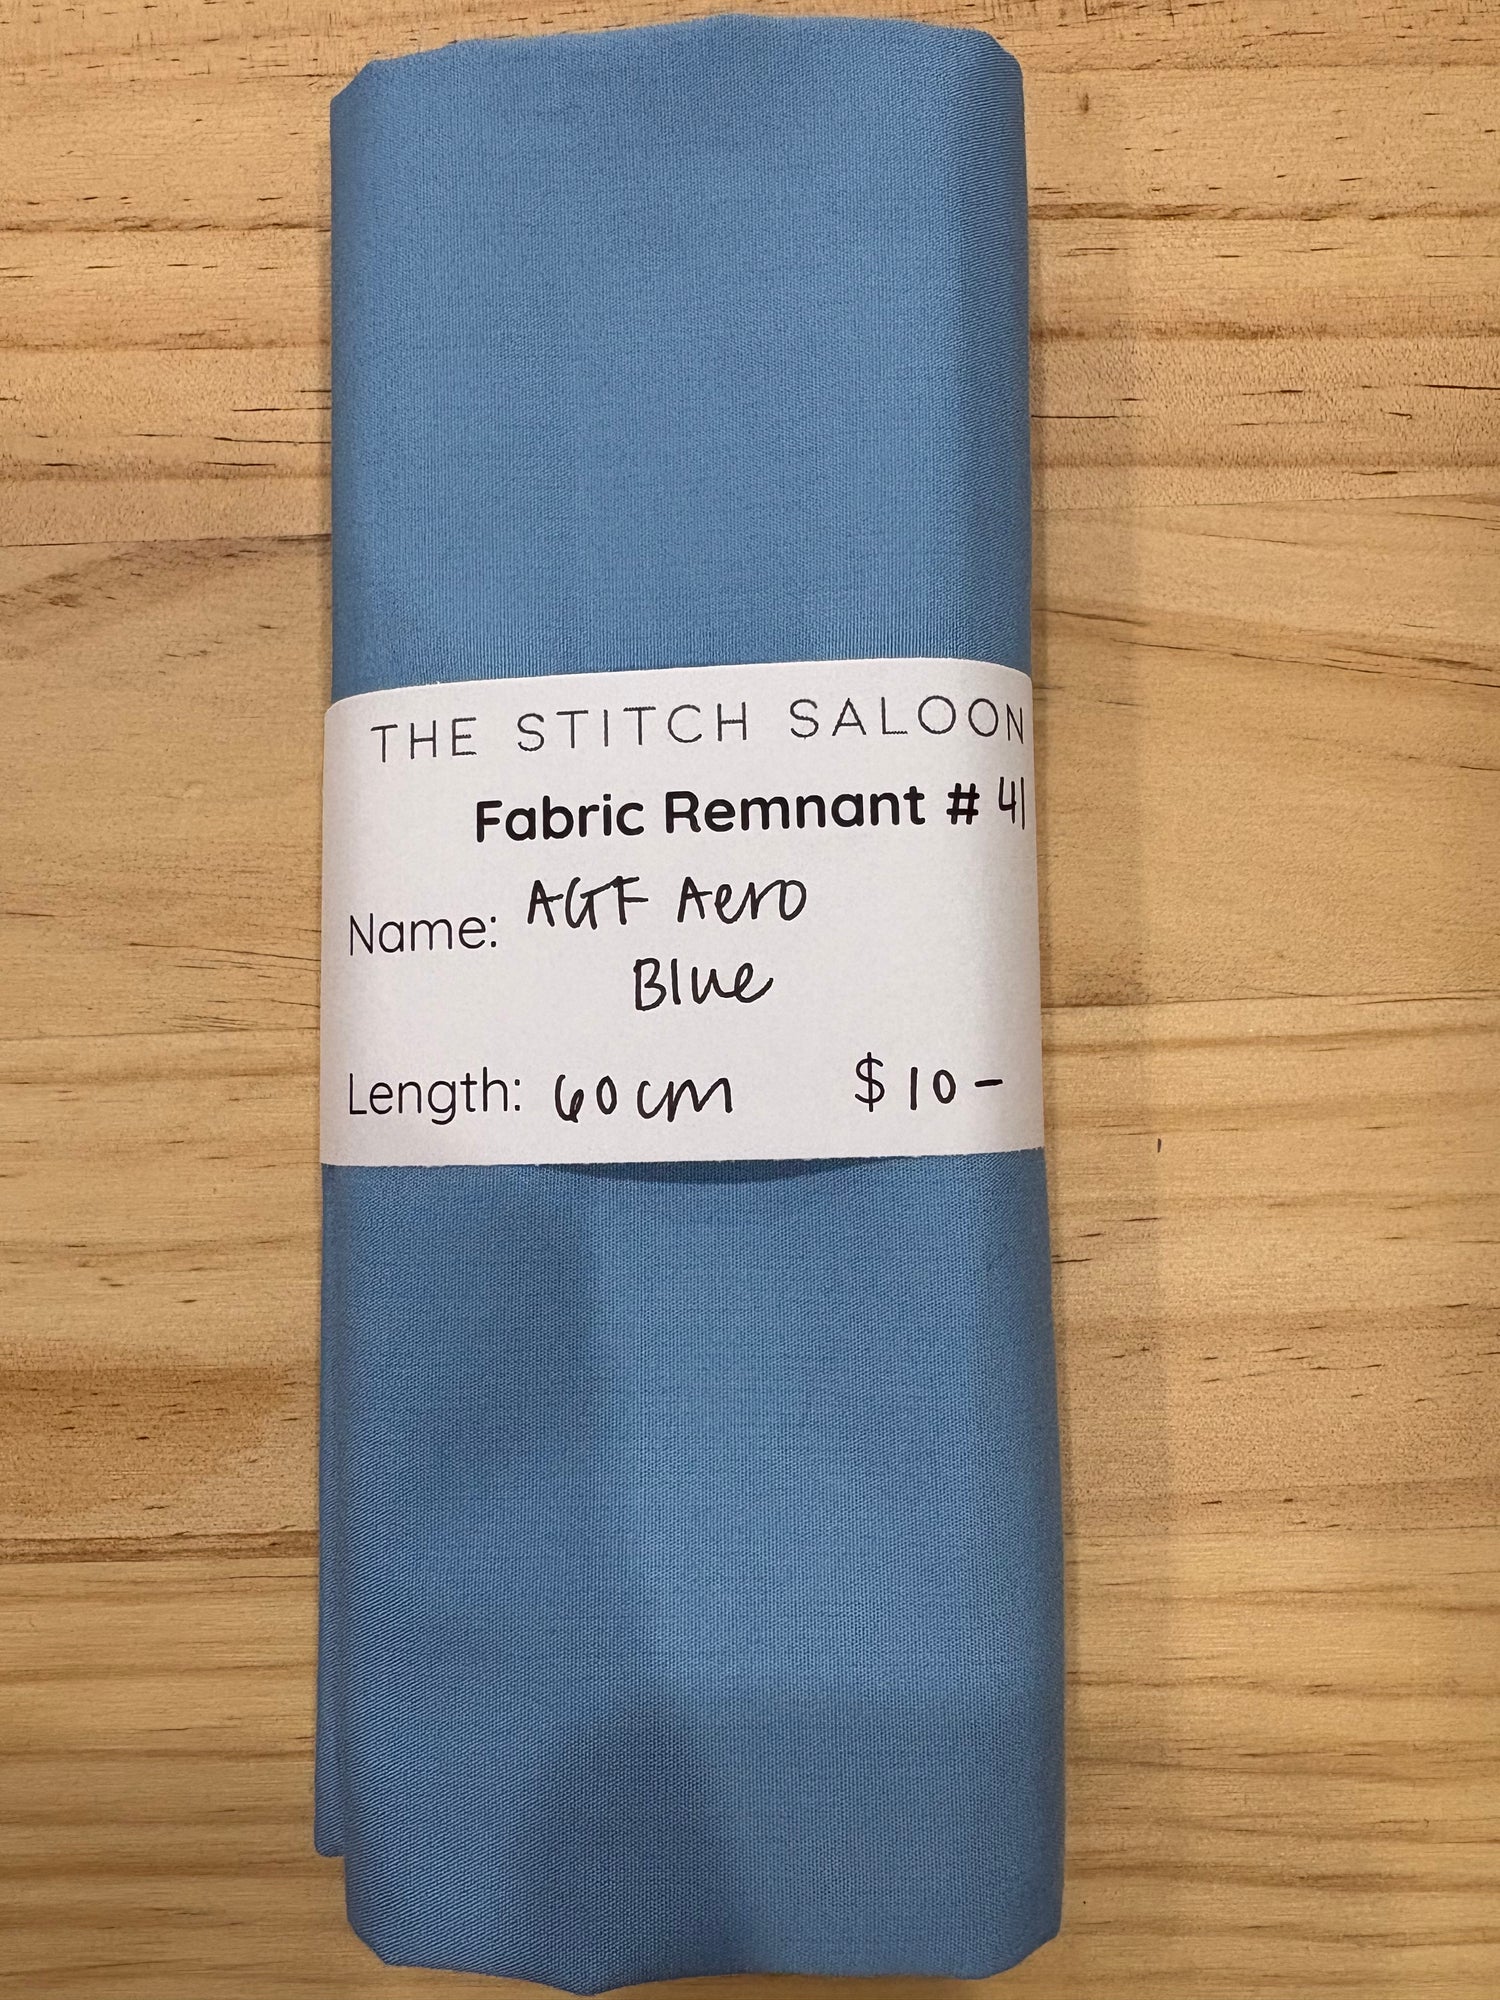 THE STITCH SALOON
Fabric Remnant # 41
Name: AGF Aero
Blue
Length: 60cm $10-